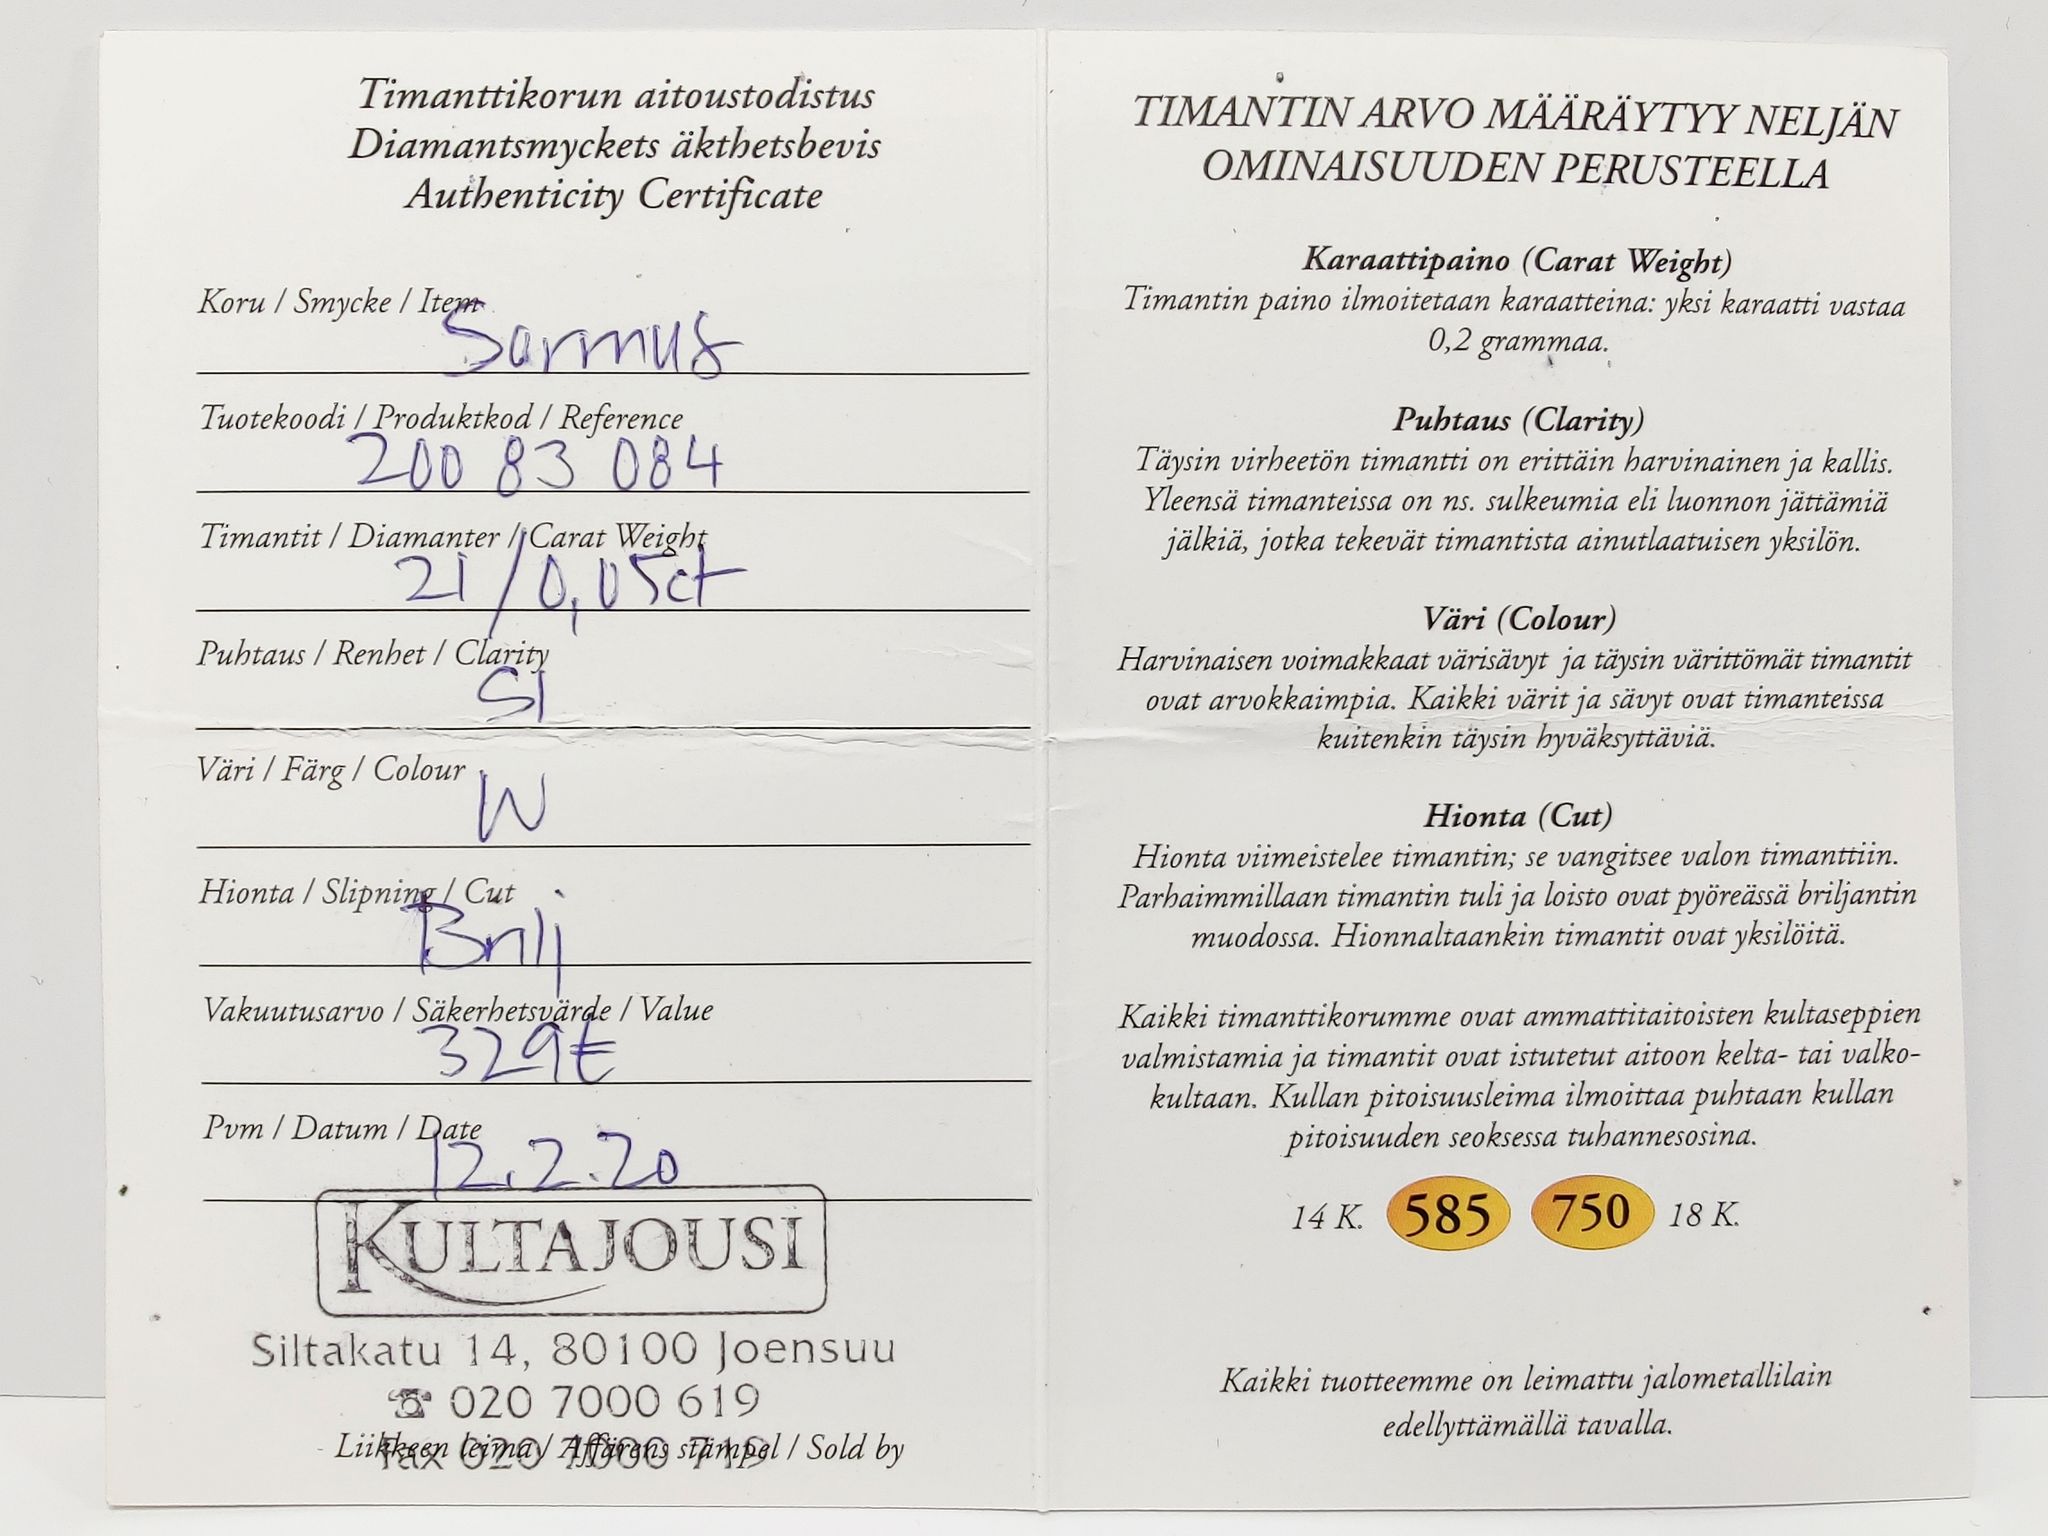 Timanttikorun aitoustodistus
Diamantsmyckets äkthetsbevis
Authenticity Certificate
Koru / Smycke / Item
Sormus
Tuotekoodi / Produktkod / Reference
200 83 084
Timantit / Diamanter / Carat Weight
21 / 0,05ct
Puhtaus / Renhet / Clarity
SI
Väri / Färg / Colour
W
Hionta / Slipning / Cut
Brilj
Vakuutusarvo / Säkerhetsvärde / Value
329€
Pvm / Datum / Date
12.2.20
KULTAJOUSI
Siltakatu 14, 80100 Joensuu
☎ 020 7000 619
Liikkeen leima / Affärens stämpel / Sold by
Fax 020 7000 719
TIMANTIN ARVO MÄÄRÄYTYY NELJÄN
OMINAISUUDEN PERUSTEELLA
Karaattipaino (Carat Weight)
Timantin paino ilmoitetaan karaatteina: yksi karaatti vastaa
0,2 grammaa.
Puhtaus (Clarity)
Täysin virheetön timantti on erittäin harvinainen ja kallis.
Yleensä timanteissa on ns. sulkeumia eli luonnon jättämiä
jälkiä, jotka tekevät timantista ainutlaatuisen yksilön.
Väri (Colour)
Harvinaisen voimakkaat värisävyt ja täysin värittömät timantit
ovat arvokkaimpia. Kaikki värit ja sävyt ovat timanteissa
kuitenkin täysin hyväksyttäviä.
Hionta (Cut)
Hionta viimeistelee timantin; se vangitsee valon timanttiin.
Parhaimmillaan timantin tuli ja loisto ovat pyöreässä briljantin
muodossa. Hionnaltaankin timantit ovat yksilöitä.
Kaikki timanttikorumme ovat ammattitaitoisten kultaseppien
valmistamia ja timantit ovat istutetut aitoon kelta- tai valko-
kultaan. Kullan pitoisuusleima ilmoittaa puhtaan kullan
pitoisuuden seoksessa tuhannesosina.
14 K. 585 750 18 K.
Kaikki tuotteemme on leimattu jalometallilain
edellyttämällä tavalla.